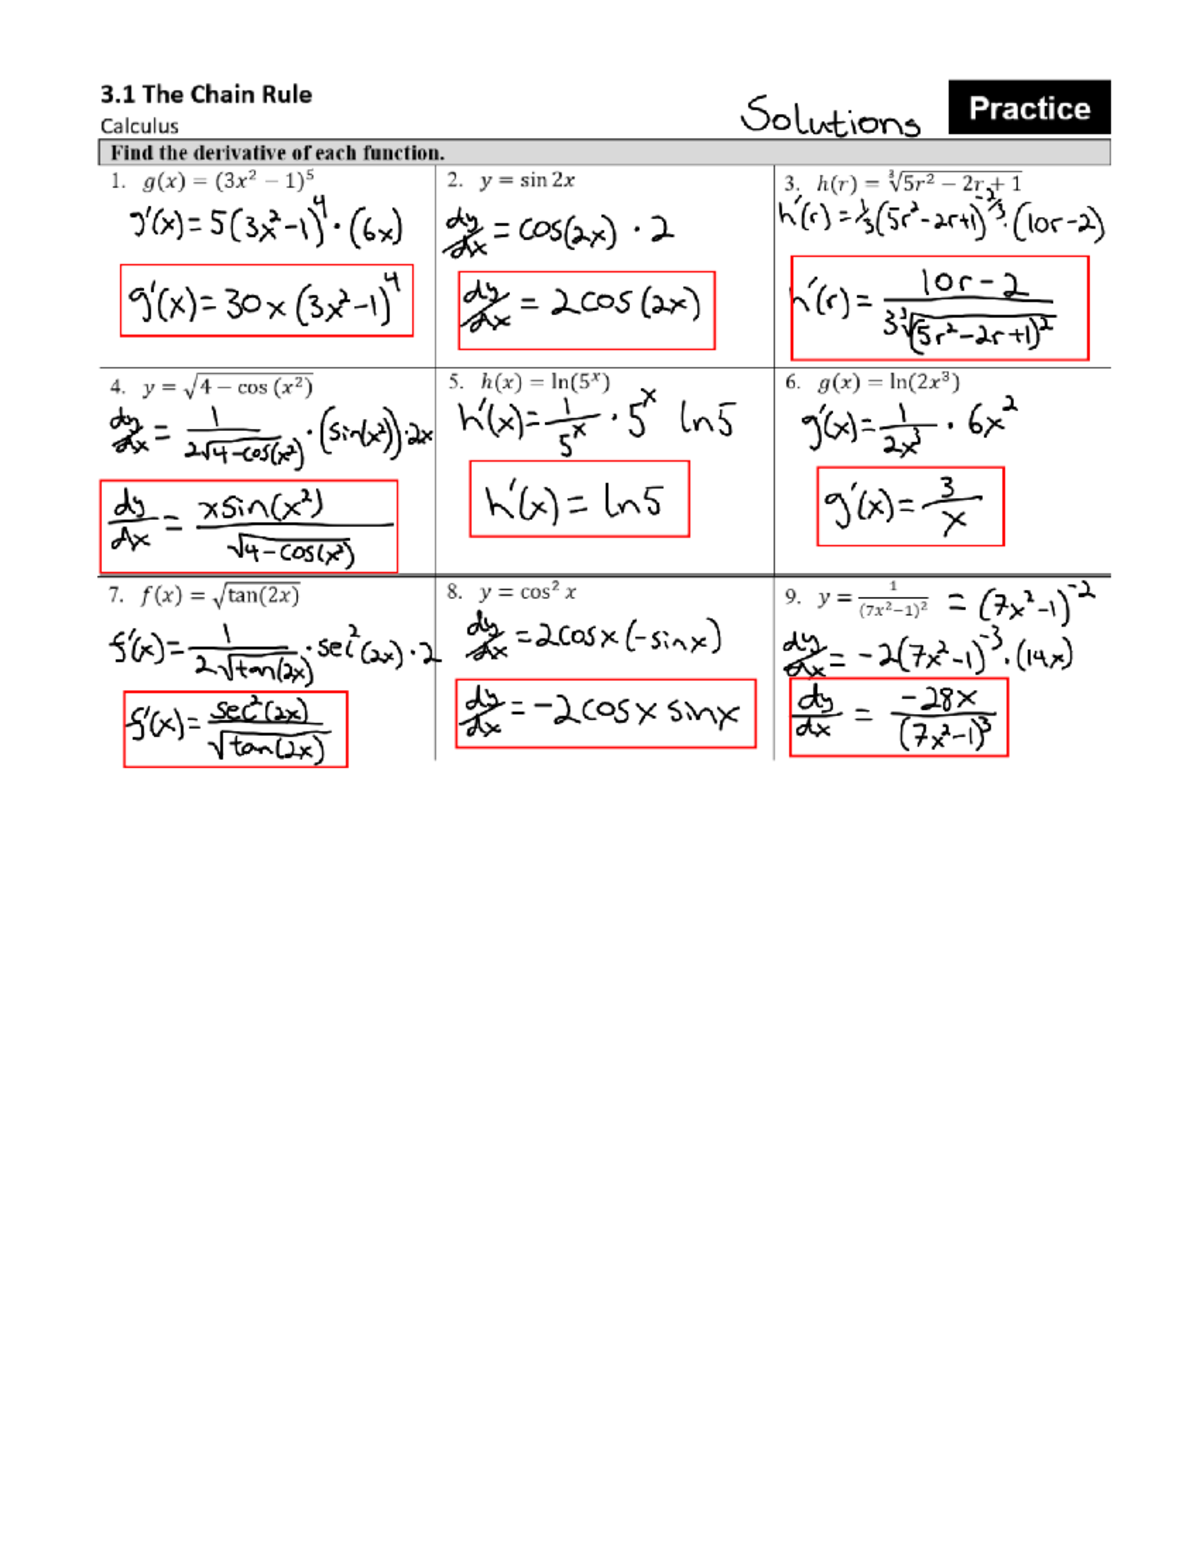 3.1 The Chain Rule
Calculus
Solutions
Practice
Find the derivative of each function.
1. g(x) = (3x² − 1)⁵
g'(x) = 5(3x²-1)⁴ · (6x)
g'(x) = 30x (3x²-1)⁴
2. y = sin 2x
dy/dx = cos(2x) · 2
dy/dx = 2cos(2x)
3. h(r) = ∛(5r² − 2r + 1)
h'(r) = 1/3(5r²-2r+1)^(-2/3) · (10r-2)
h'(r) = (10r-2)/(3∛(5r²-2r+1)²)
4. y = √(4 − cos (x²))
dy/dx = 1/(2√(4-cos(x²))) · (sin(x²)) · 2x
dy/dx = xsin(x²)/√(4-cos(x²))
5. h(x) = ln(5ˣ)
h'(x) = 1/5ˣ · 5ˣ ln5
h'(x) = ln5
6. g(x) = ln(2x³)
g'(x) = 1/2x³ · 6x²
g'(x) = 3/x
7. f(x) = √tan(2x)
f'(x) = 1/(2√tan(2x)) · sec²(2x) · 2
f'(x) = sec²(2x)/√tan(2x)
8. y = cos² x
dy/dx = 2cosx(-sinx)
dy/dx = -2cosx sinx
9. y = 1/(7x²−1)² = (7x²-1)⁻²
dy/dx = -2(7x²-1)⁻³ · (14x)
dy/dx = -28x/(7x²-1)³